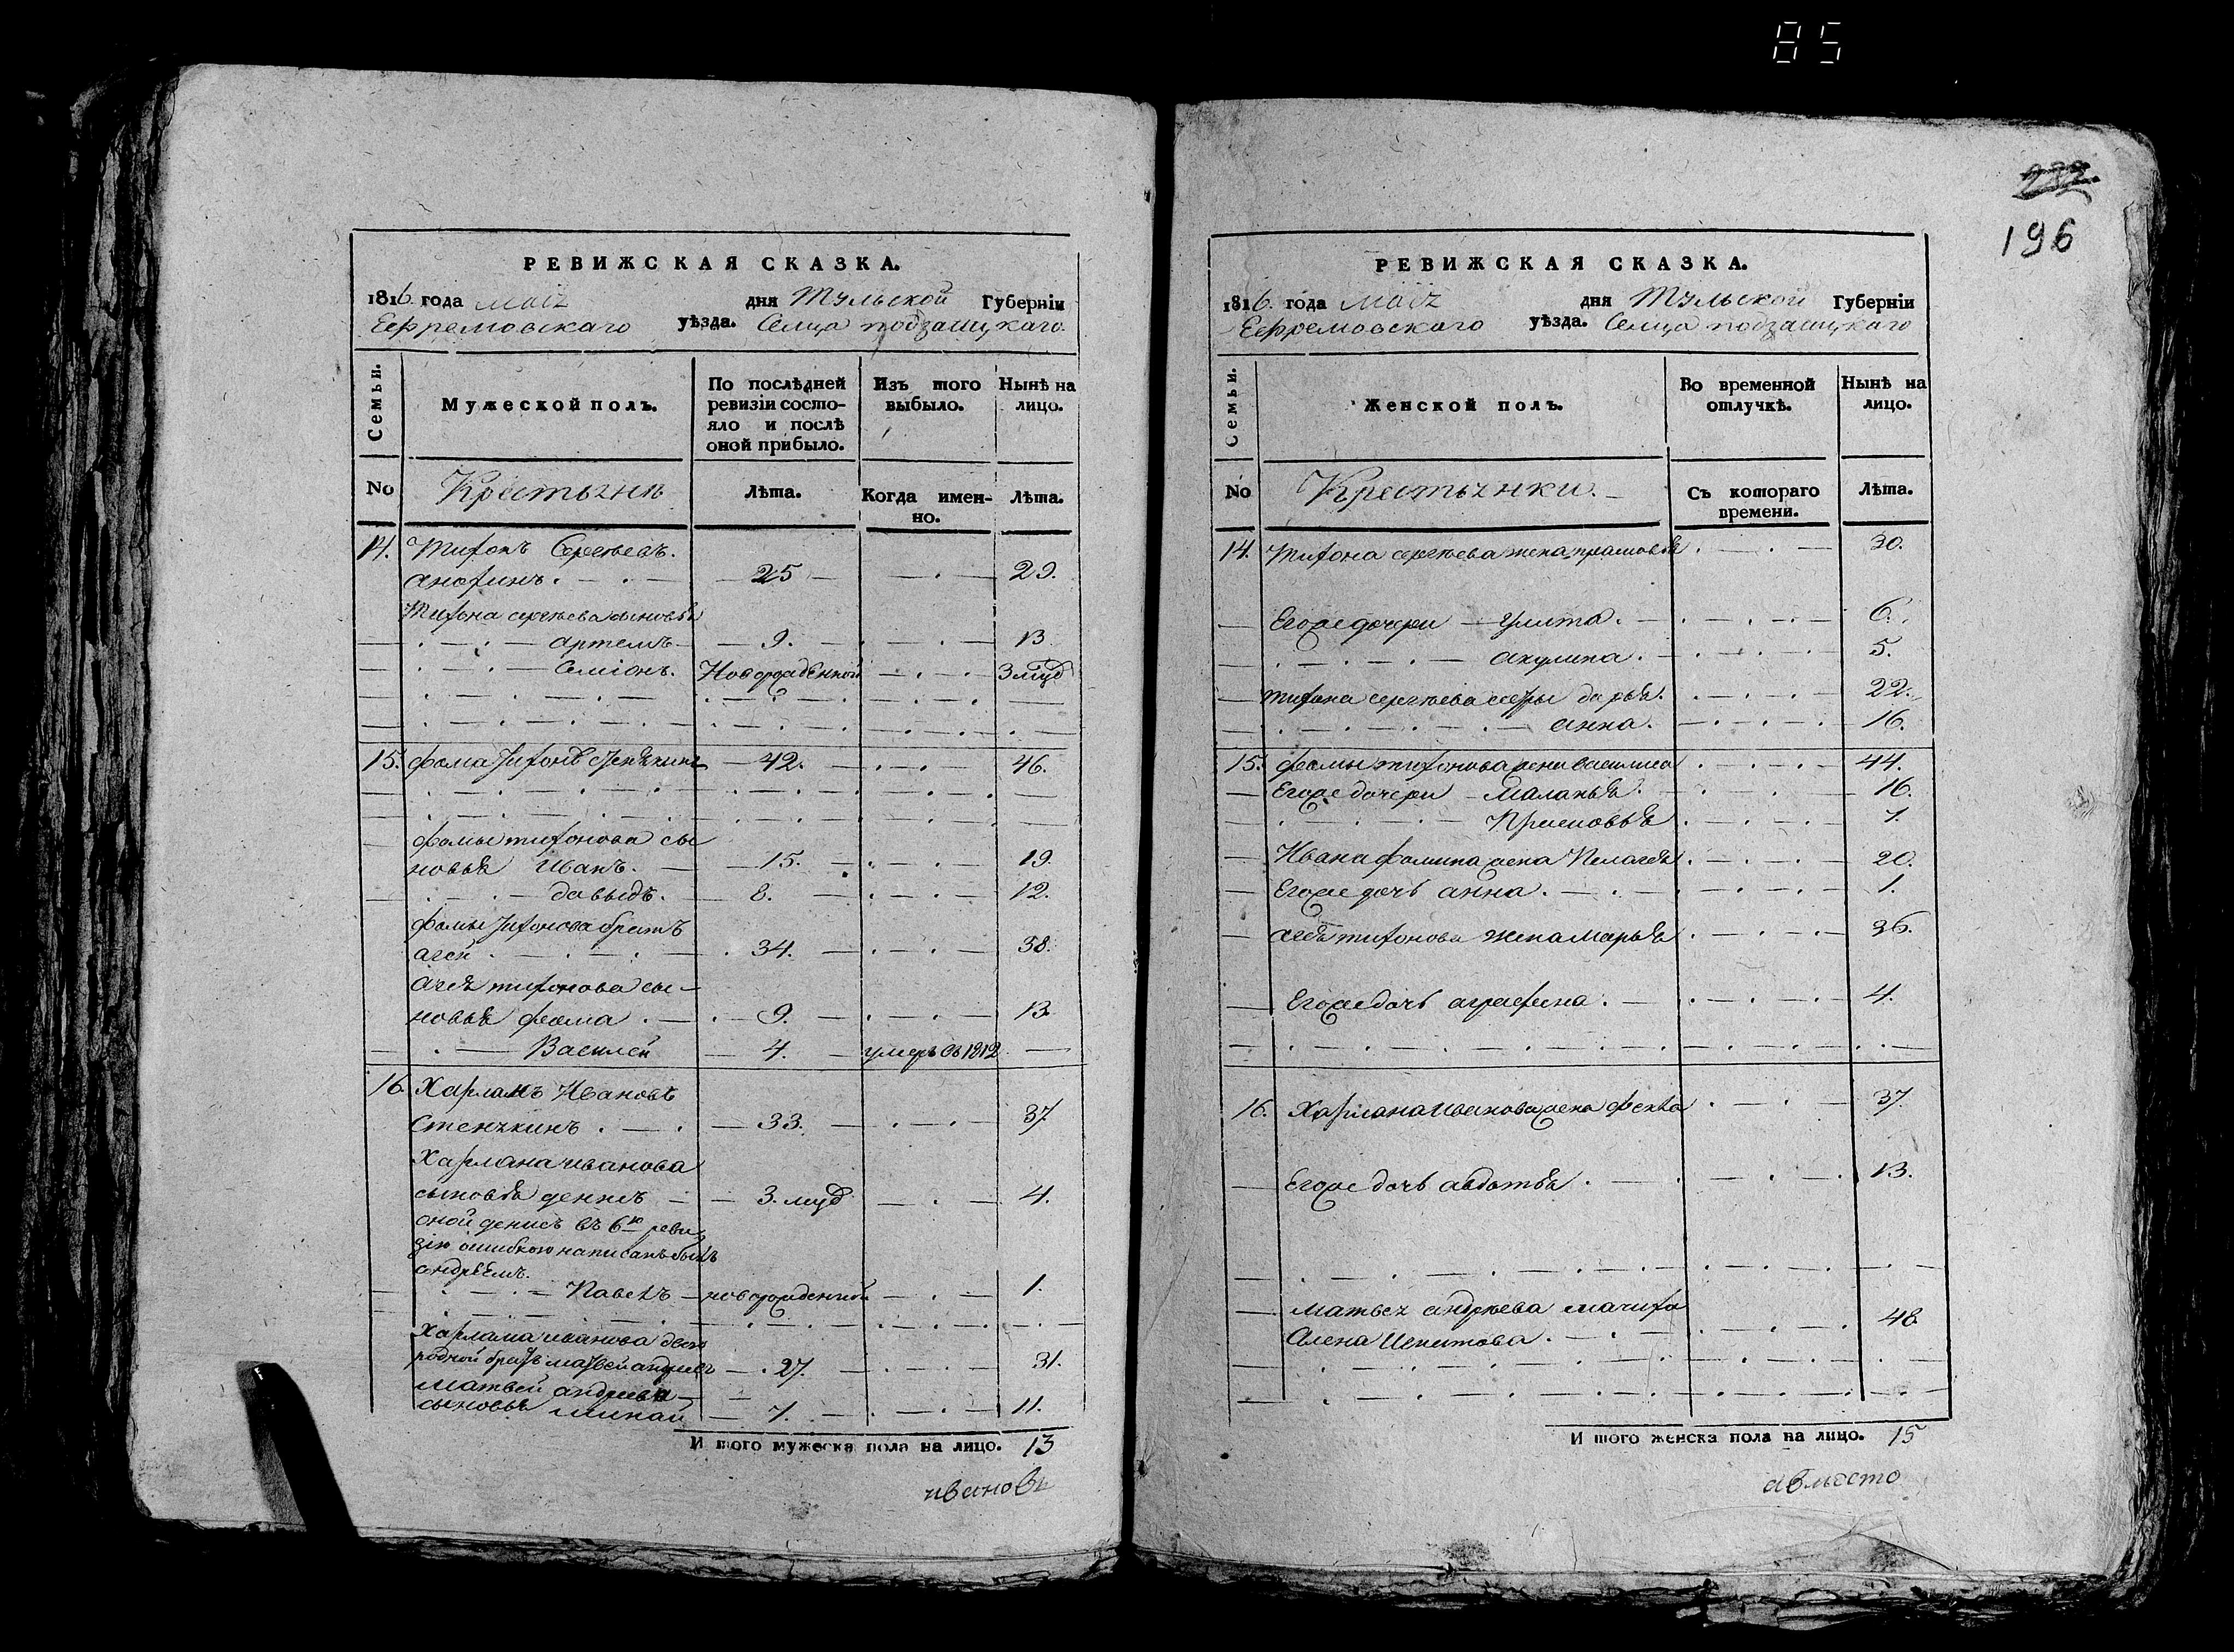 85
232.
196
РЕВИЖСКАЯ СКАЗКА.
1816. года маія дня Тульской Губерніи
Ефремовскаго уѣзда. Селца подзацкаго
Семьи. Мужеской полъ. По послѣдней ревизіи состо- Изъ того Нынѣ на
яло и послѣ оной прибыло. выбыло. лицо.
No Крестьяня Лѣта. Когда имен- Лѣта.
но.
14. Тихонъ Сергѣевъ.
анохинъ. 25 29.
Тихона сергѣева сыновья
артемъ 9. 13
Семіонъ. Новорожденной 3 мцд
15. фома тихонов 42. 46.
фомы тихонова сы
новья Иванъ. 15. 19.
давыдъ. 8. 12.
фомы тихонова братъ
агей 34. 38.
агея тихонова сы-
новья фома. 9. 13.
Василей 4. умеръ въ 1812
16. Харламъ Ивановъ
Стенякинъ. 33. 37
Харлама иванова
сыновья денисъ 3. мцд 4.
оной денисъ въ 6ю реви
зію ошибкою написанъ былъ
андрѣемъ.
Павелъ новорожденной 1.
Харлама иванова двою
родной братъ матвей андреевъ 27. 31.
матвея андреева
сыновья минай 7. 11.
И того мужеска пола на лицо. 13
ивановъ
РЕВИЖСКАЯ СКАЗКА.
1816. года маія дня Тульской Губерніи
Ефремовскаго уѣзда. Селца подзацкаго
Семьи. Женской полъ. Во временной Нынѣ на
отлучкѣ. лицо.
No Крестьянки. Съ котораго Лѣта.
времени.
14. Тихона сергѣева жена прасковья 30.
Егоже дочери улита. 6.
акулина. 5.
тихона сергѣева сестры дарья. 22.
анна. 16.
15. фомы тихонова жена василиса 44.
Егоже дочери Маланья. 16.
Прасковья 7.
Ивана фомина жена Пелагея 20.
Егоже дочь анна. 1.
агея тихонова жена Марья 36.
Егоже дочь аграфена. 4.
16. Харлама иванова жена фекла 37.
Егоже дочь авдотья. 13.
матвея андреева мачиха
алена 48
И того женска пола на лицо. 15